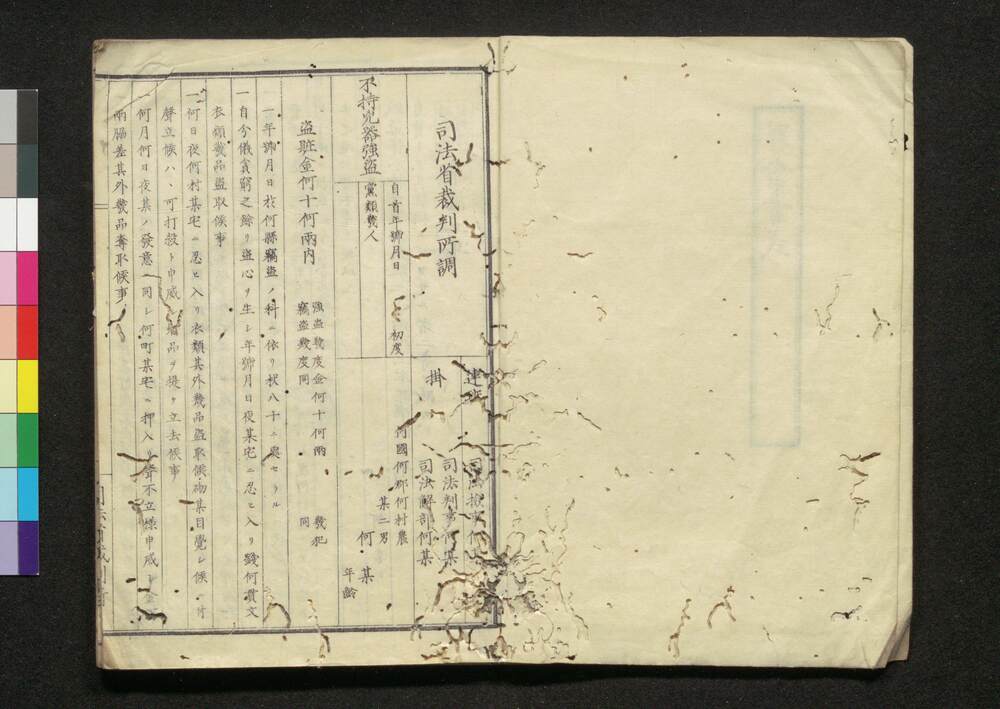 司法省裁判所調
連班 司法權
掛 司法判事何某
司法解部何某
不持兇器強盗
自首年號月日 初度
黨類幾人
何國何郡何村農
某二男
何 某
年齡
盗贓金何十何兩内
強盗幾度金何十何兩 幾犯
竊盗幾度同 同
一年號月日於何縣竊盗ノ科ニ依リ杖八十ニ處セラル
一自分儀貧窮之餘リ盗心ヲ生シ年號月日夜某宅ニ忍ヒ入リ錢何貫文
衣類幾品盗取候事
一何日夜何村某宅ニ忍ヒ入リ衣類其外幾品盗取候砌某目覺シ候ニ付
聲立候ハヽ可打殺ト申威シ贓品ヲ提ケ立去候事
一何月何日夜某ノ發意ニ同シ何町某宅ニ押入リ聲不立様申威シ金
兩脇差其外幾品奪取候事
司法省裁判所